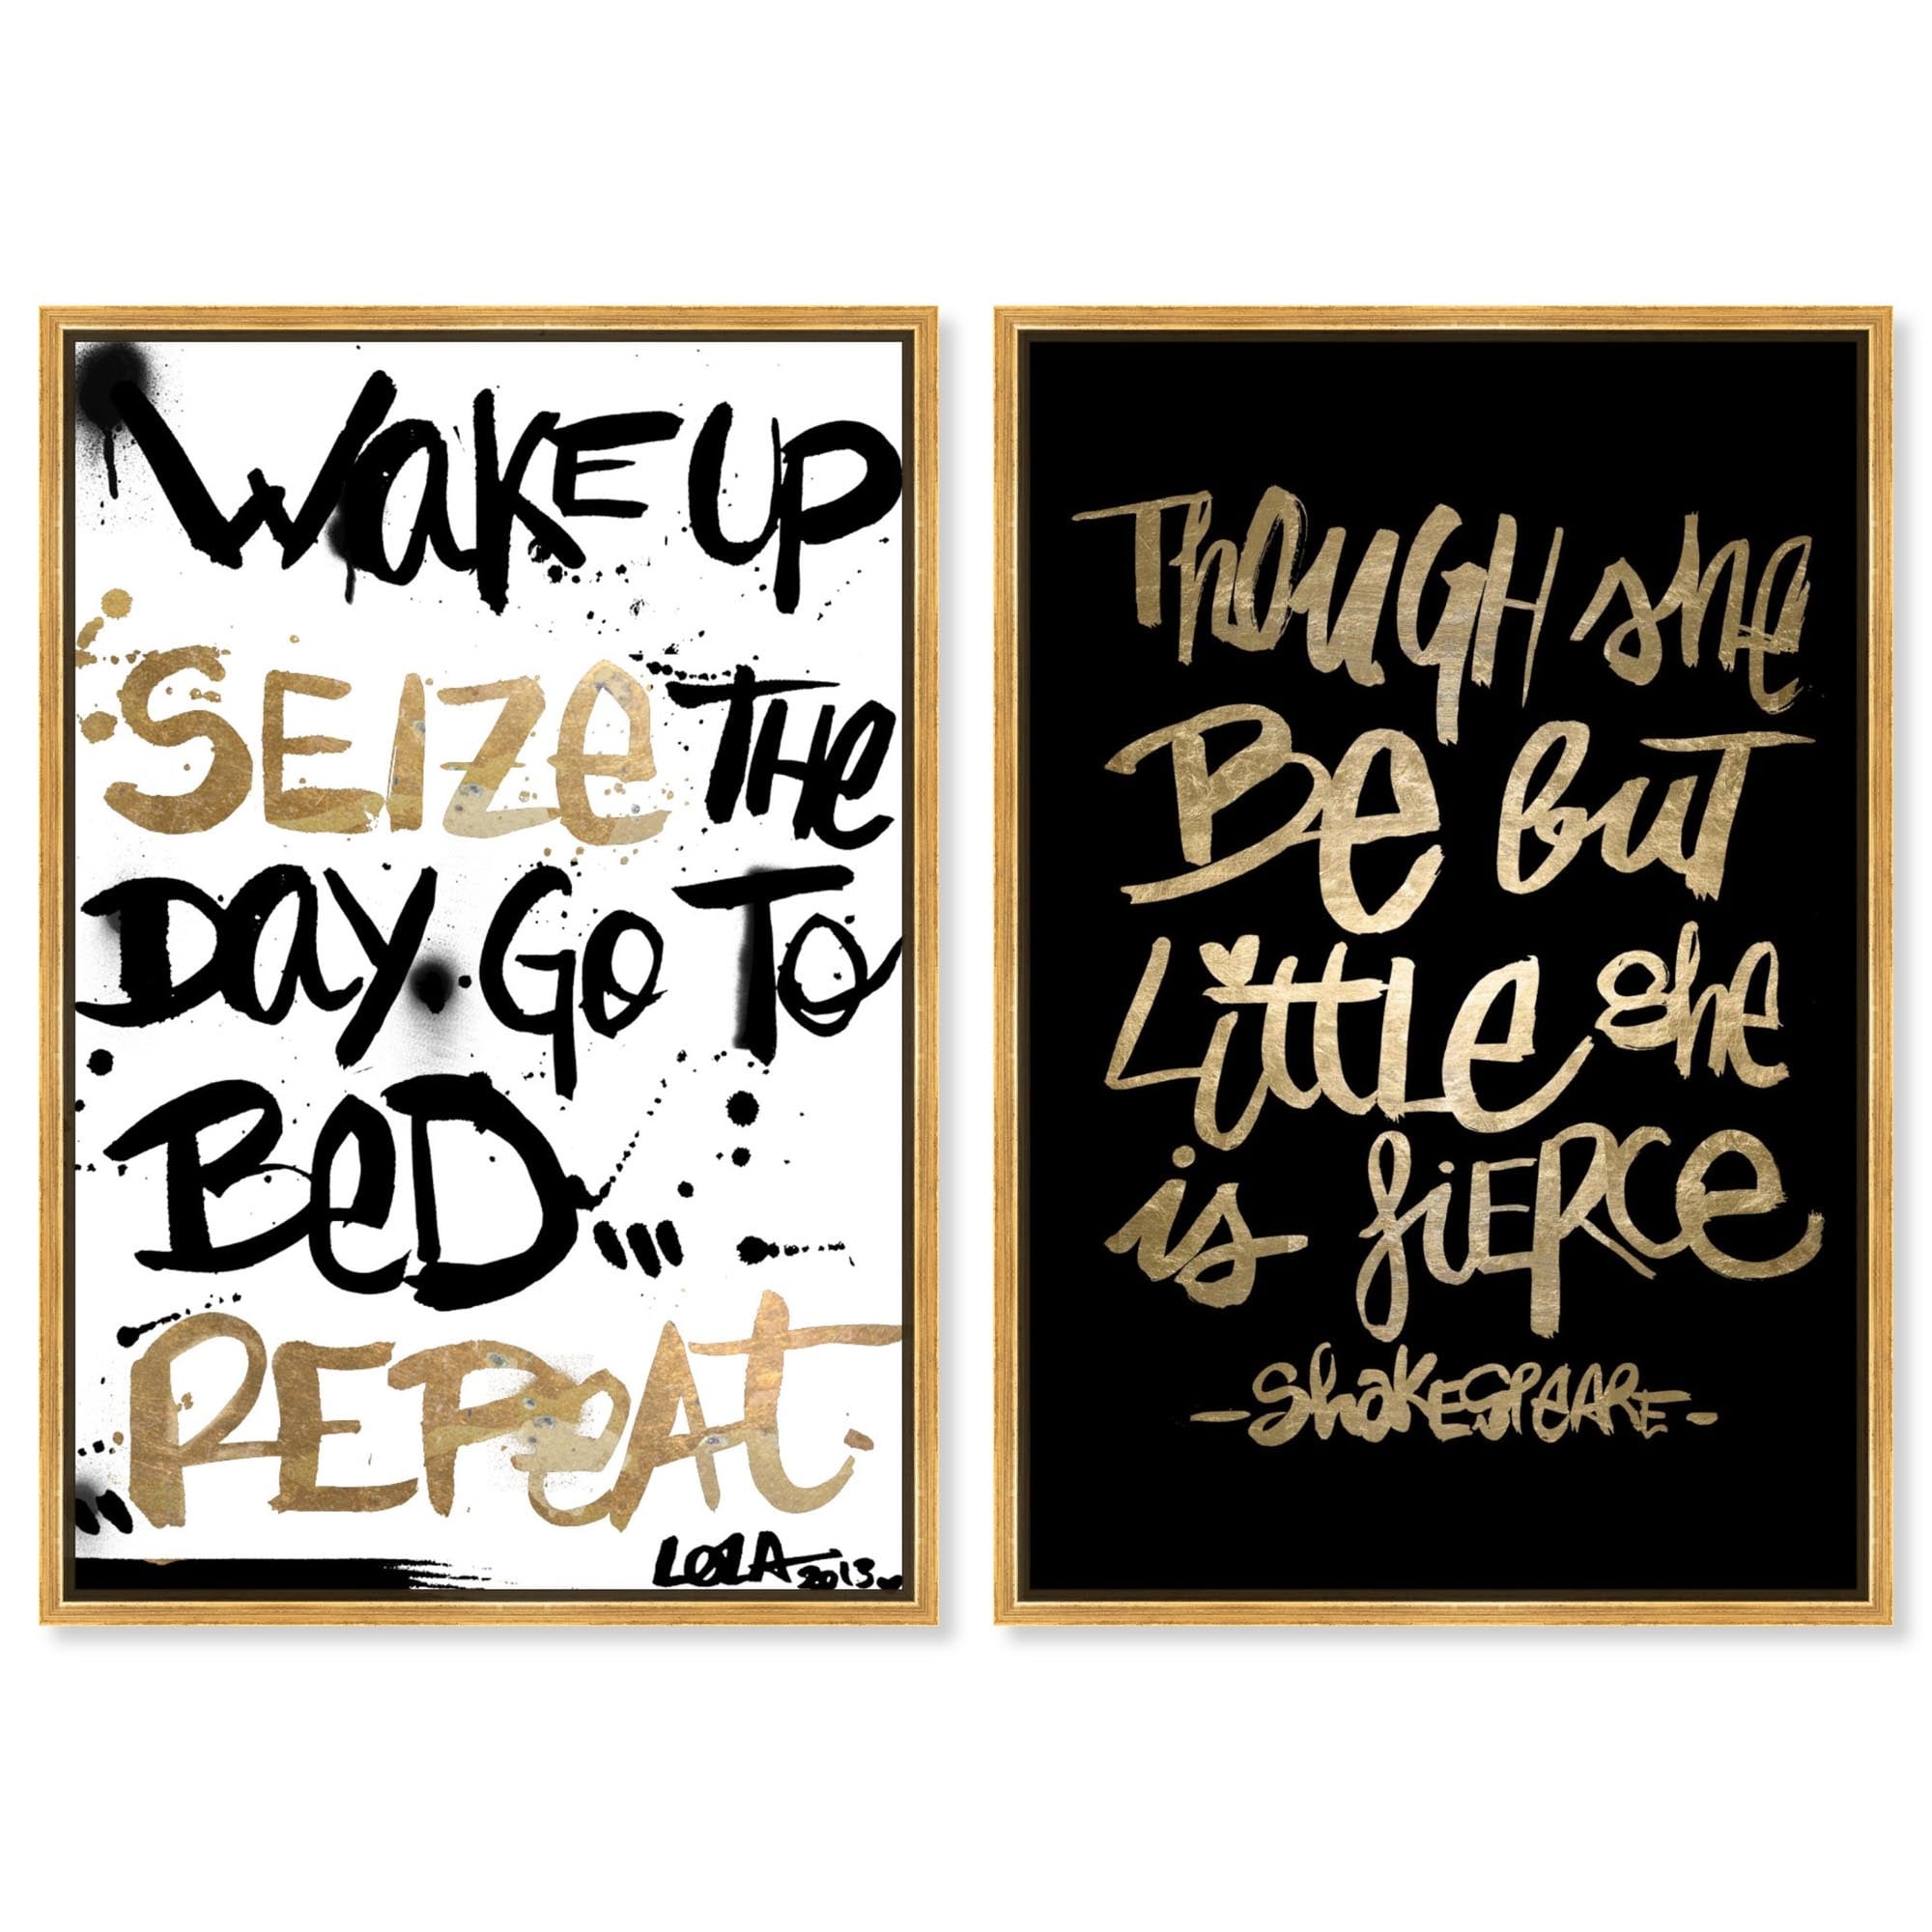 WAKE UP
SEIZE THE
DAY. GO TO
BED...
REPEAT.
LOLA 2013
THOUGH she
Be but
Little she
is fierce
- Shakespeare -